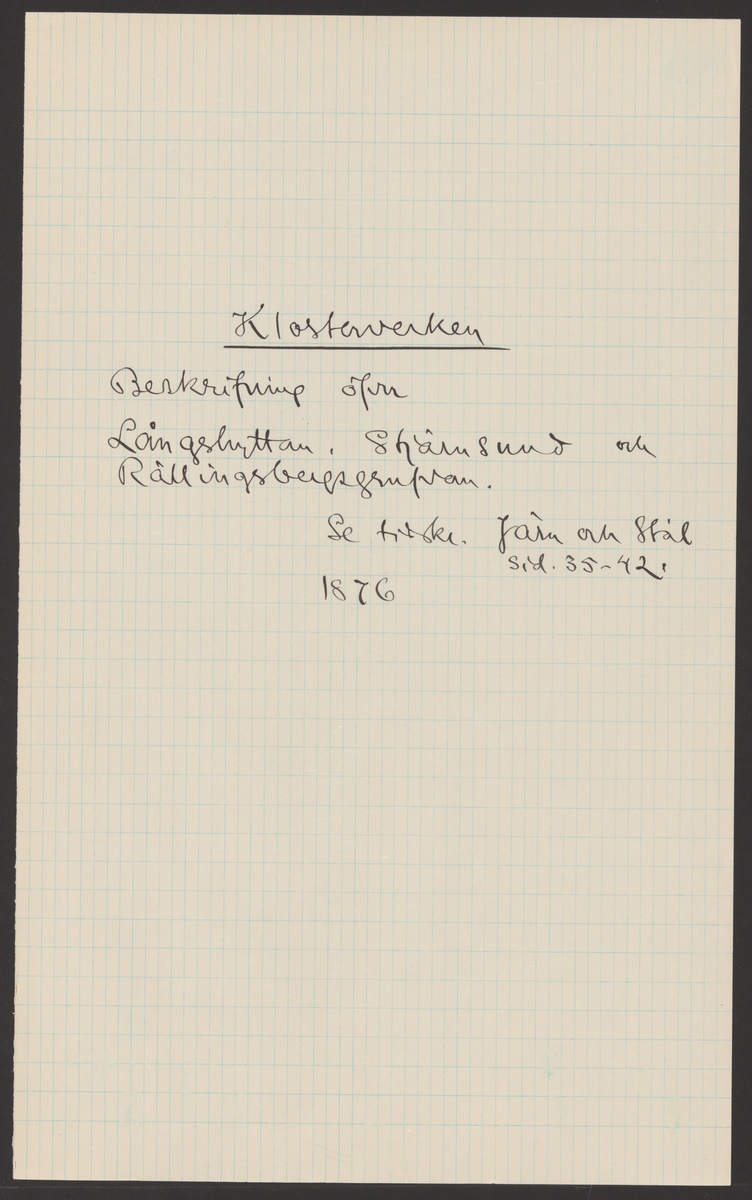 Klosterverken
Beskrifning öfver
Långshyttan, Stjärnsund och
Rällingsbergsgrufvan.
Se tidskr. Järn och Stål
sid. 35-42.
1876